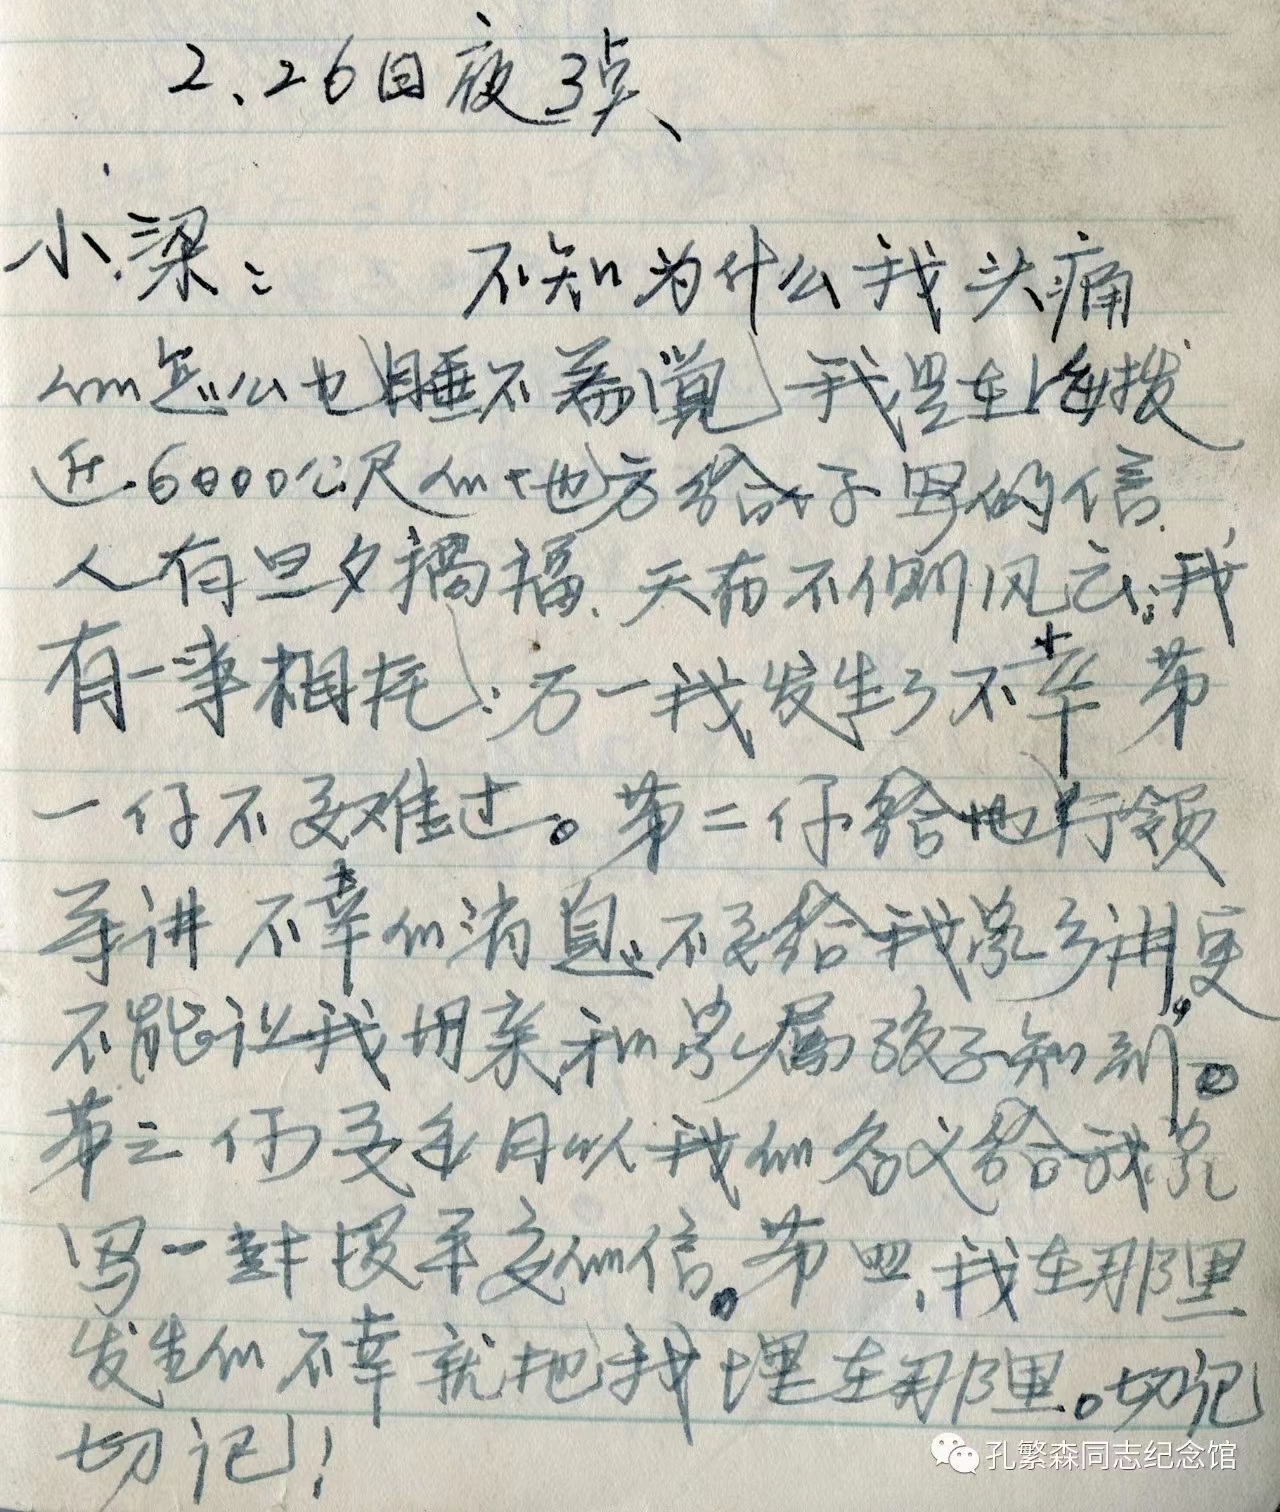 2、26日夜3点、
小梁： 不知为什么我头痛
的怎么也睡不着觉 我是在海拔
近6000公尺的地方给仔写的信
人有旦夕祸福、天有不测风云；我
有一事相托：万一我发生了不幸 第
一仔不要难过。第二仔给地行领
导讲 不幸的消息不要给我家乡讲，更
不能让我母亲和家属孩子知到。
第三 你要每月以我的名义给我家
写一封报平安的信。第四、我在那里
发生的不幸就把我埋在那里。切记
切记！
孔繁森同志纪念馆